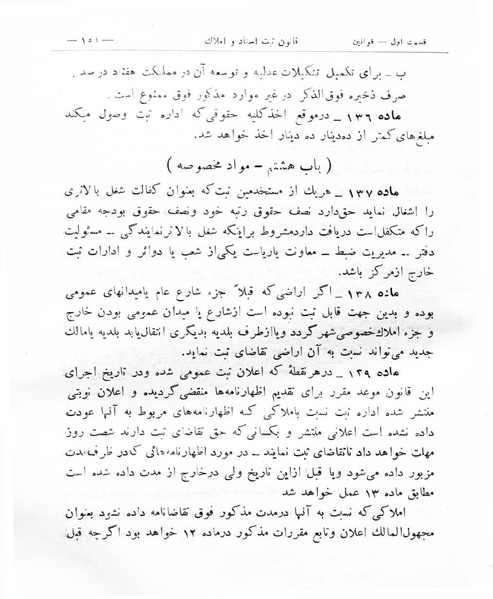 قسمت اول — قوانین قانون ثبت اسناد و املاك — ۱۵۱ —
ب ـ برای تکمیل تشکیلات عدلیه و توسعه آن در مملکت هفتاد درصد.
صرف ذخیره فوق‌الذکر در غیر موارد مذکور فوق ممنوع است.
ماده ۱۳۶ ـ درموقع اخذ کلیه حقوقی که اداره ثبت وصول میکند
مبلغ‌های کمتر از ده‌دینار ده دینار اخذ خواهد شد.
( باب هشتم ـ مواد مخصوصه )
ماده ۱۳۷ ـ هریك از مستخدمین ثبت که بعنوان کفالت شغل بالاتری
را اشغال نماید حق‌دارد نصف حقوق رتبه خود ونصف حقوق بودجه مقامی
راکه متکفل‌است دریافت داردمشروط براینکه شغل بالاتر نمایندگی ـ مسئولیت
دفتر ـ مدیریت ضبط ـ معاونت یاریاست یکی‌از شعب یا دوائر و ادارات ثبت
خارج ازمرکز باشد.
ماده ۱۳۸ ـ اگر اراضی‌که قبلاً جزء شارع عام یامیدانهای عمومی
بوده و بدین جهت قابل ثبت نبوده است ازشارع یا میدان عمومی بودن خارج
و جزء املاك خصوصی شهر گردد ویا ازطرف بلدیه بدیگری انتقال‌یابد بلدیه یامالك
جدید می‌تواند نسبت به آن اراضی تقاضای ثبت نماید.
ماده ۱۳۹ ـ درهرنقطهٔ که اعلان ثبت عمومی شده ودر تاریخ اجرای
این قانون موعد مقرر برای تقدیم اظهارنامه‌ها منقضی‌گردیده و اعلان نوبتی
منتشر شده اداره ثبت نسبت باملاکی که اظهارنامه‌های مربوط به آنها عودت
داده نشده است اعلانی منتشر و بکسانی‌که حق تقاضای ثبت دارند شصت روز
مهلت خواهد داد تاتقاضای ثبت نمایند ـ در مورد اظهارنامه‌هائی که‌در ظرف‌مدت
مزبور داده می‌شود ویا قبل ازاین تاریخ ولی درخارج از مدت داده شده است
مطابق ماده ۱۳ عمل خواهد شد
املاکی‌که نسبت به آنها درمدت مذکور فوق تقاضانامه داده نشود بعنوان
مجهول‌المالك اعلان وتابع مقررات مذکور درماده ۱۲ خواهد بود اگرچه قبل